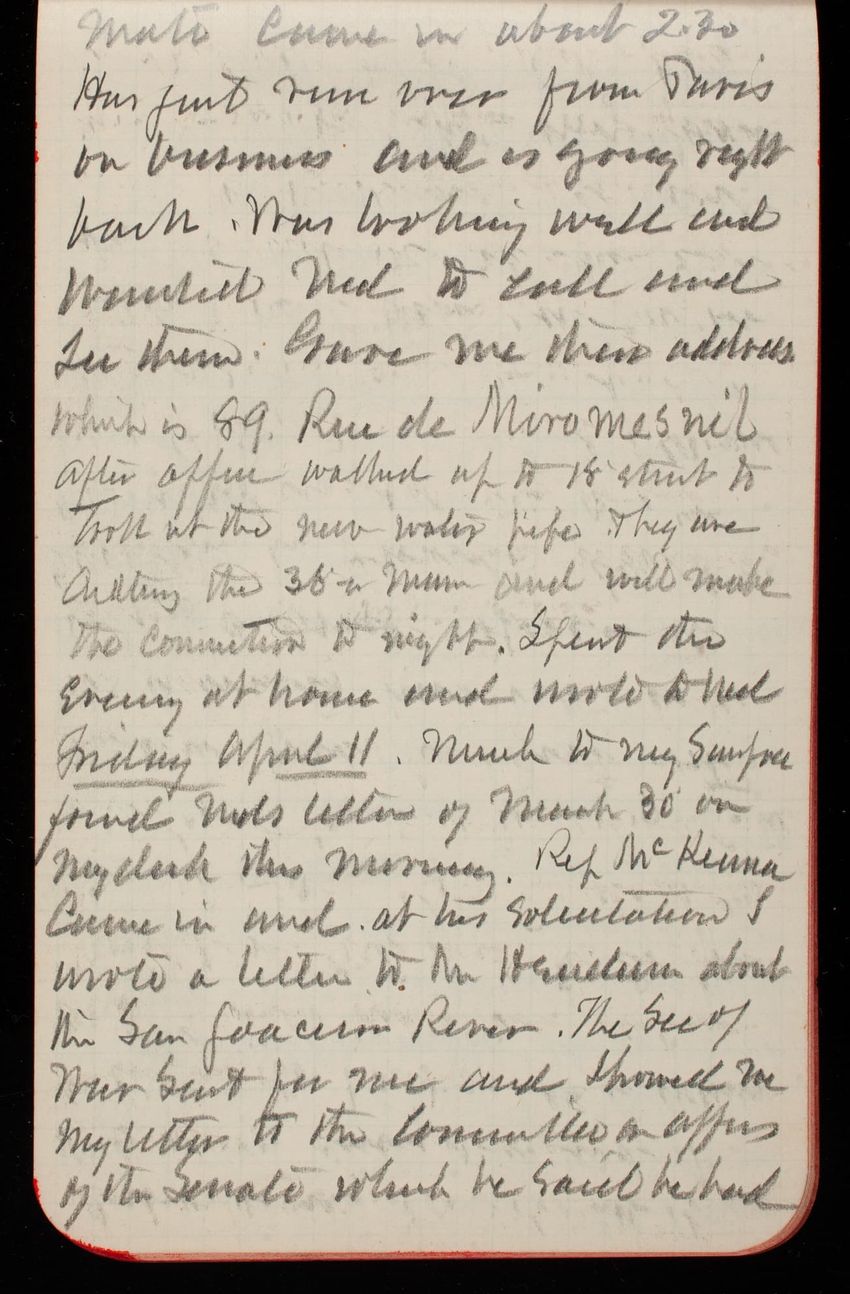 came in about 2.30
Has just run over from Paris
on business and is going right
back. Was looking well and
wanted Ned to call and
see them. Gave me their address
which is 89. Rue de Miromesnil
After office walked up to 18 street to
look at the new water pipe. They are
the 36 in main and will make
the connection to night. Spent the
evening at home and wrote to Ned
Friday April 11. Much to my Surprise
found Neds letter of March 30 on
my desk this morning. Rep McKenna
Came in and at his solicitation I
wrote a letter to Mr about
the San Joacquin River. The Sec of
War Sent for me and showed me
my letter to the Committee on affrs
of the Senate which he said he had